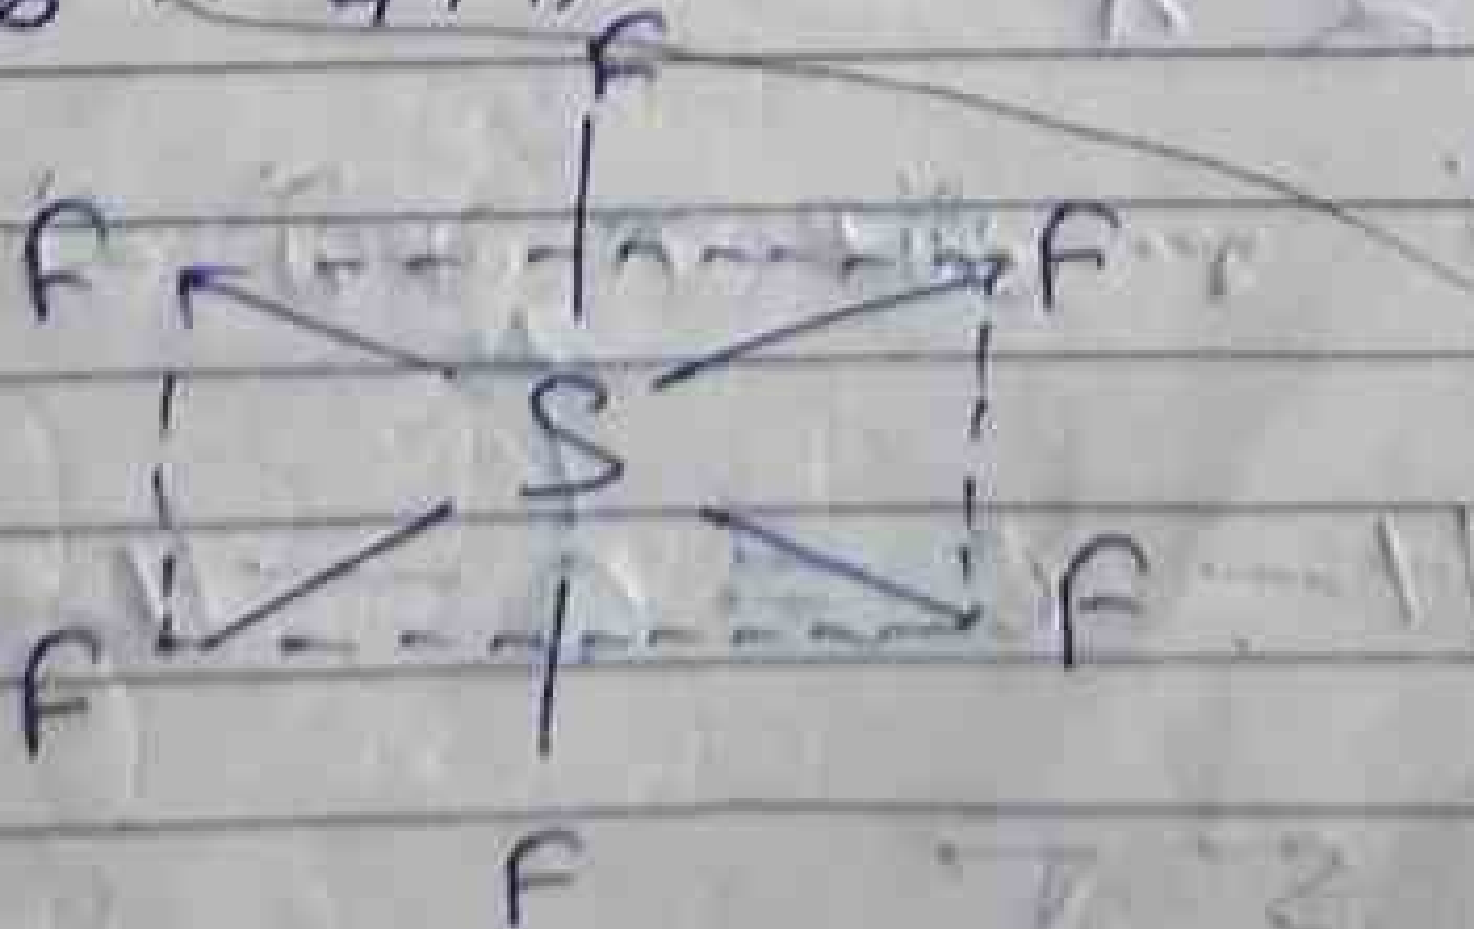 F
F F
S
F F
F